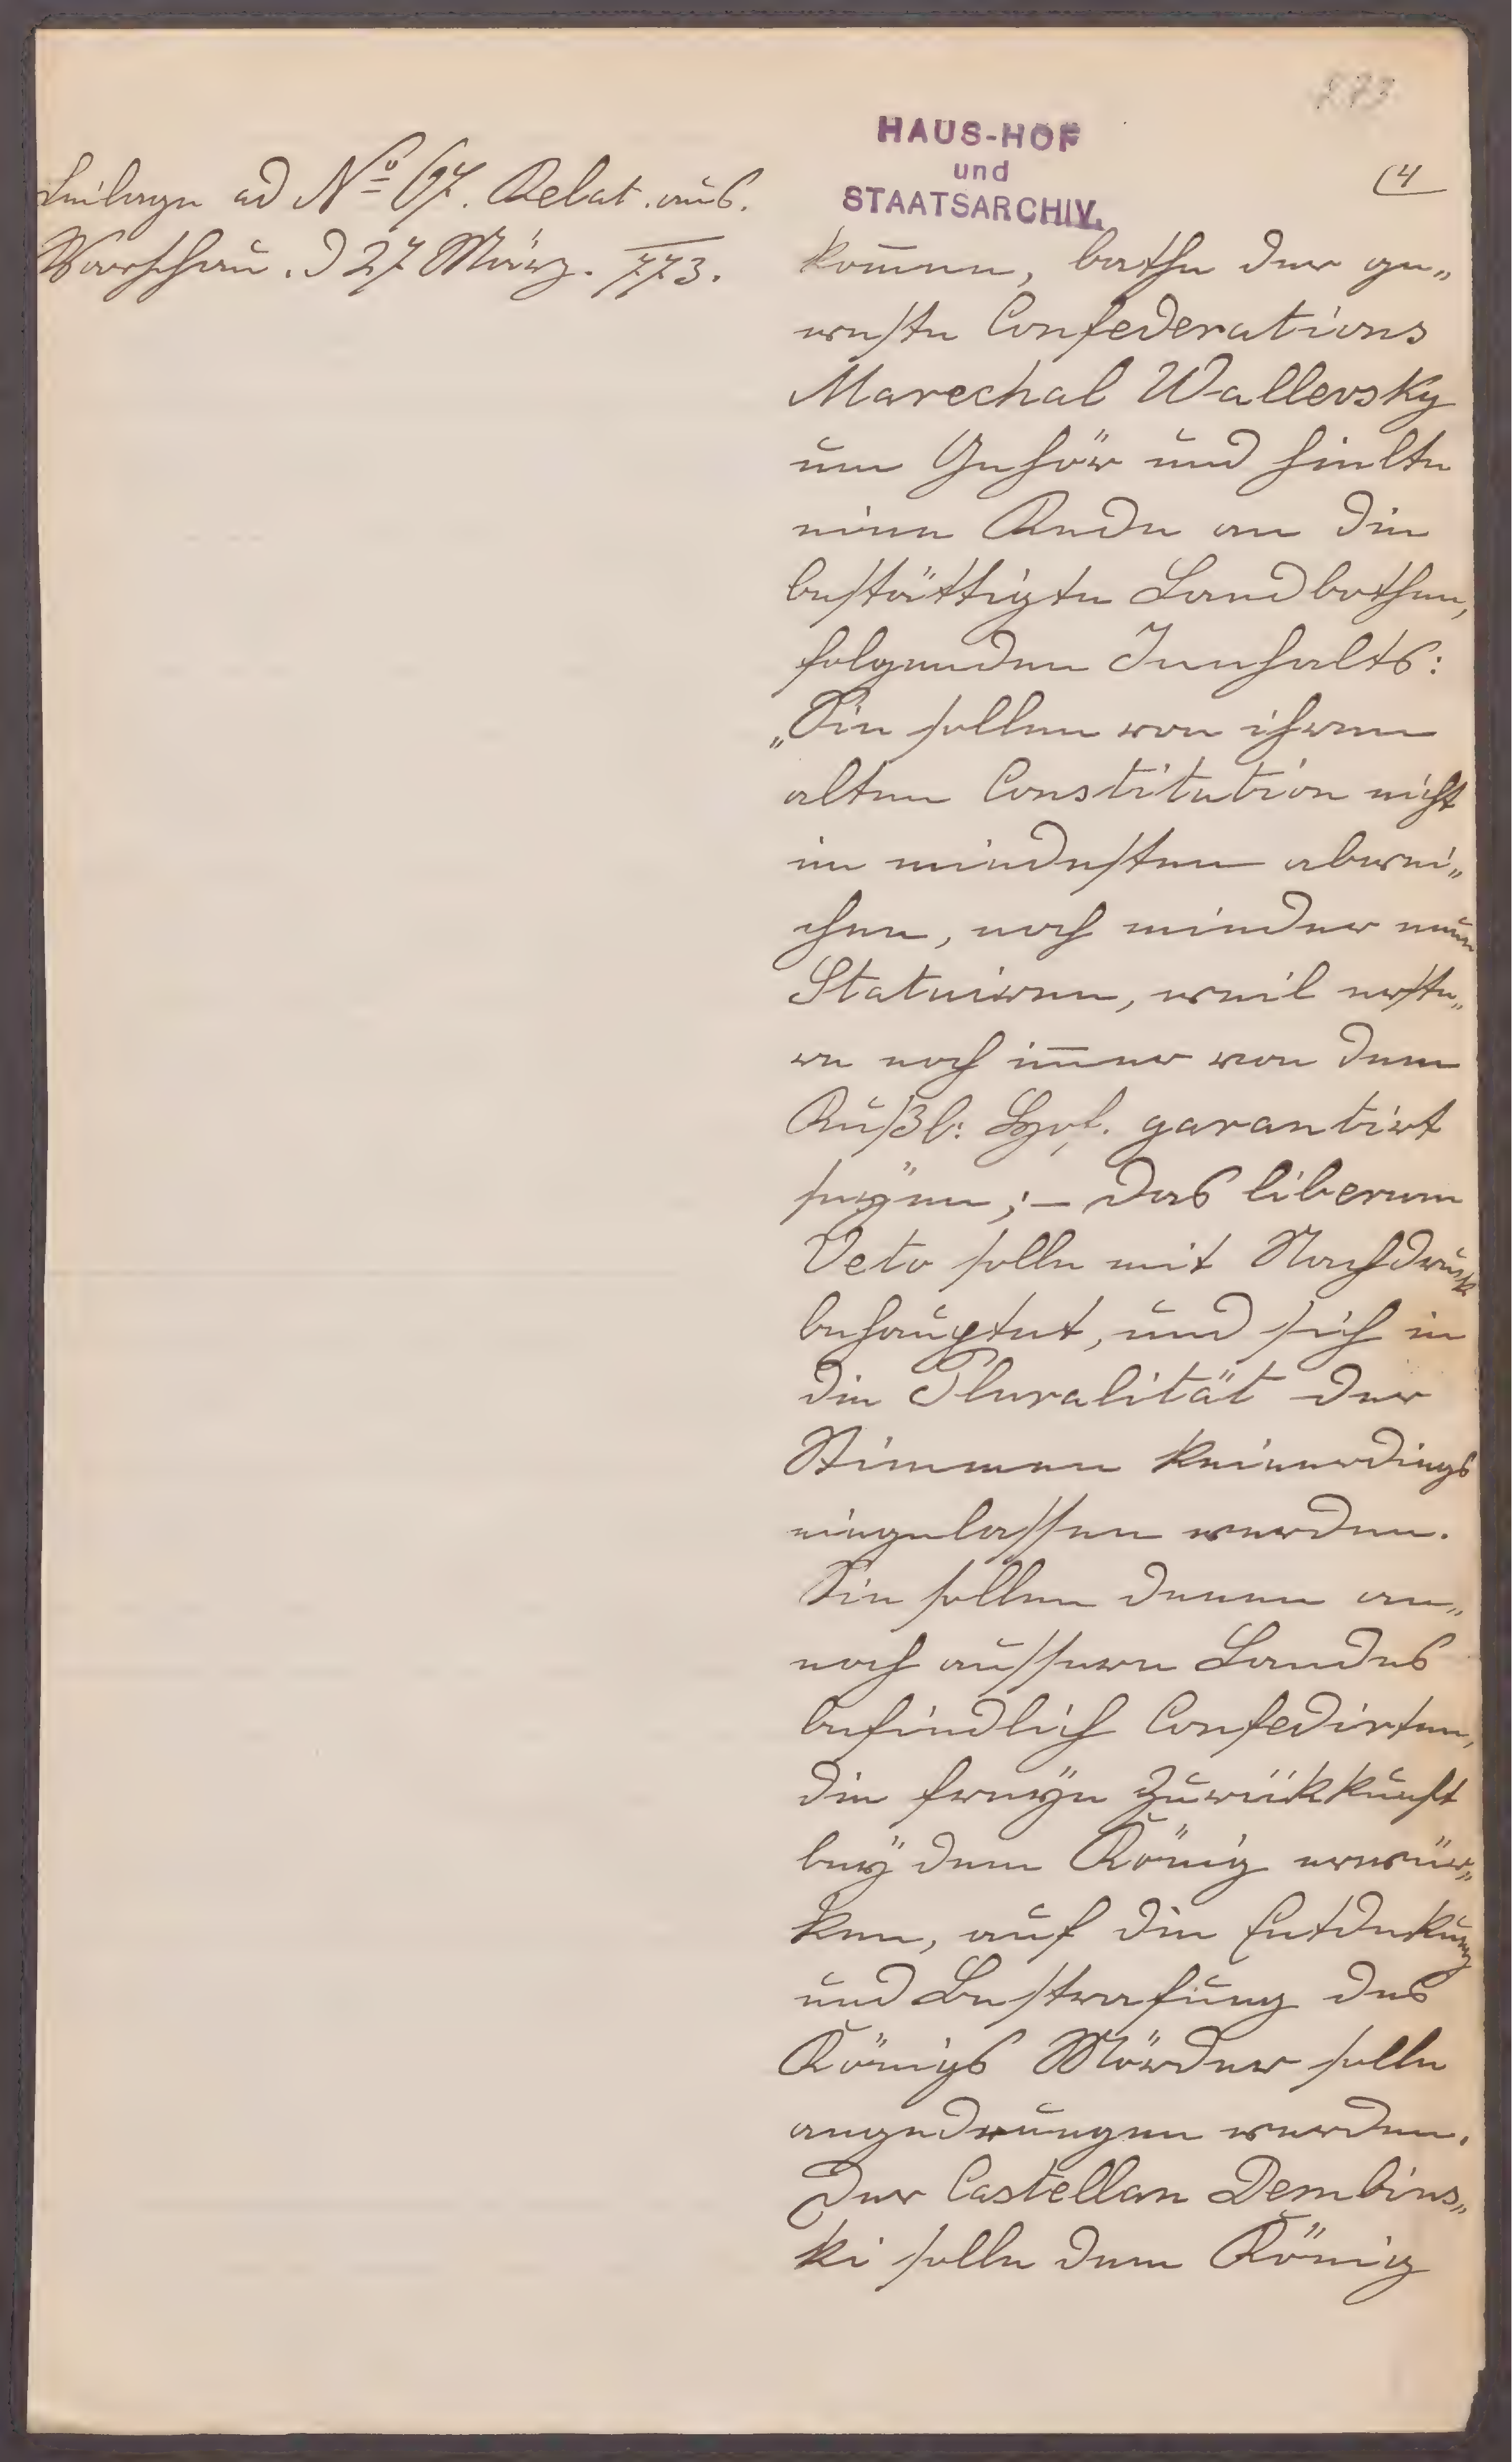 773
HAUS-HOF
und
STAATSARCHIV.
(4
Beilage ad No 67. Relat. aus.
Warschau. d 27 März. 773.
kom̄en, bathe der ge„
weste Confederations
Marechal Wallevsky
um Gehör und hielte
eine Rede an die
bestättigte Landbothen,
folgenden Innhalts:
„Sie sollen von ihrem
alten Constitution nicht
im mindesten abwei„
chen, noch minder neue
Statuiren, weil erste„
re noch im̄er von dem
Rußl: Hof. garantirt
seÿen; – das liberum
Veto solle mit Nachdruck
behauptet, und sich in
die Pluralität der
Stimmen keinerdings
eingelassen werden.
Sie sollen denen an„
noch aussern Landes
befindlich Confedirten,
die freÿe Zurükkunft
beÿ dem König erwür„
ken, auf die Entdekung
und Bestrafung des
Königs Mörder solle
angedrungen werden.
Der Castellan Dembins„
ki solle dem König